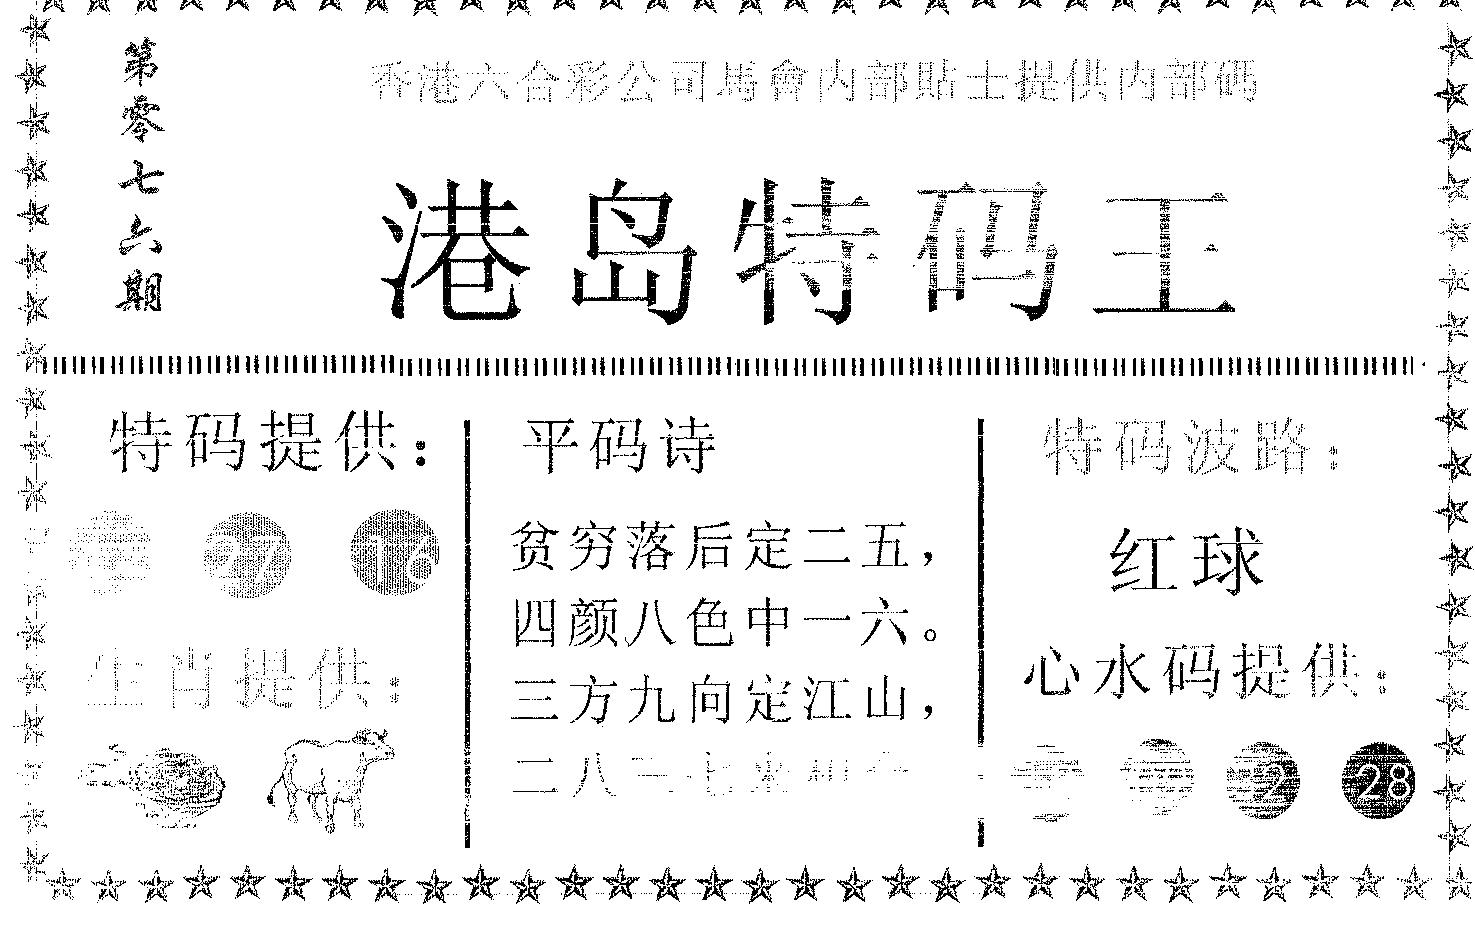 第零七六期
香港六合彩公司馬會内部貼士提供内部碼
港岛特码王
特码提供：
27 16
生肖提供：
平码诗
贫穷落后定二五，
四颜八色中一六。
三方九向定江山，
二八三七来相会
特码波路：
红球
心水码提供：
28